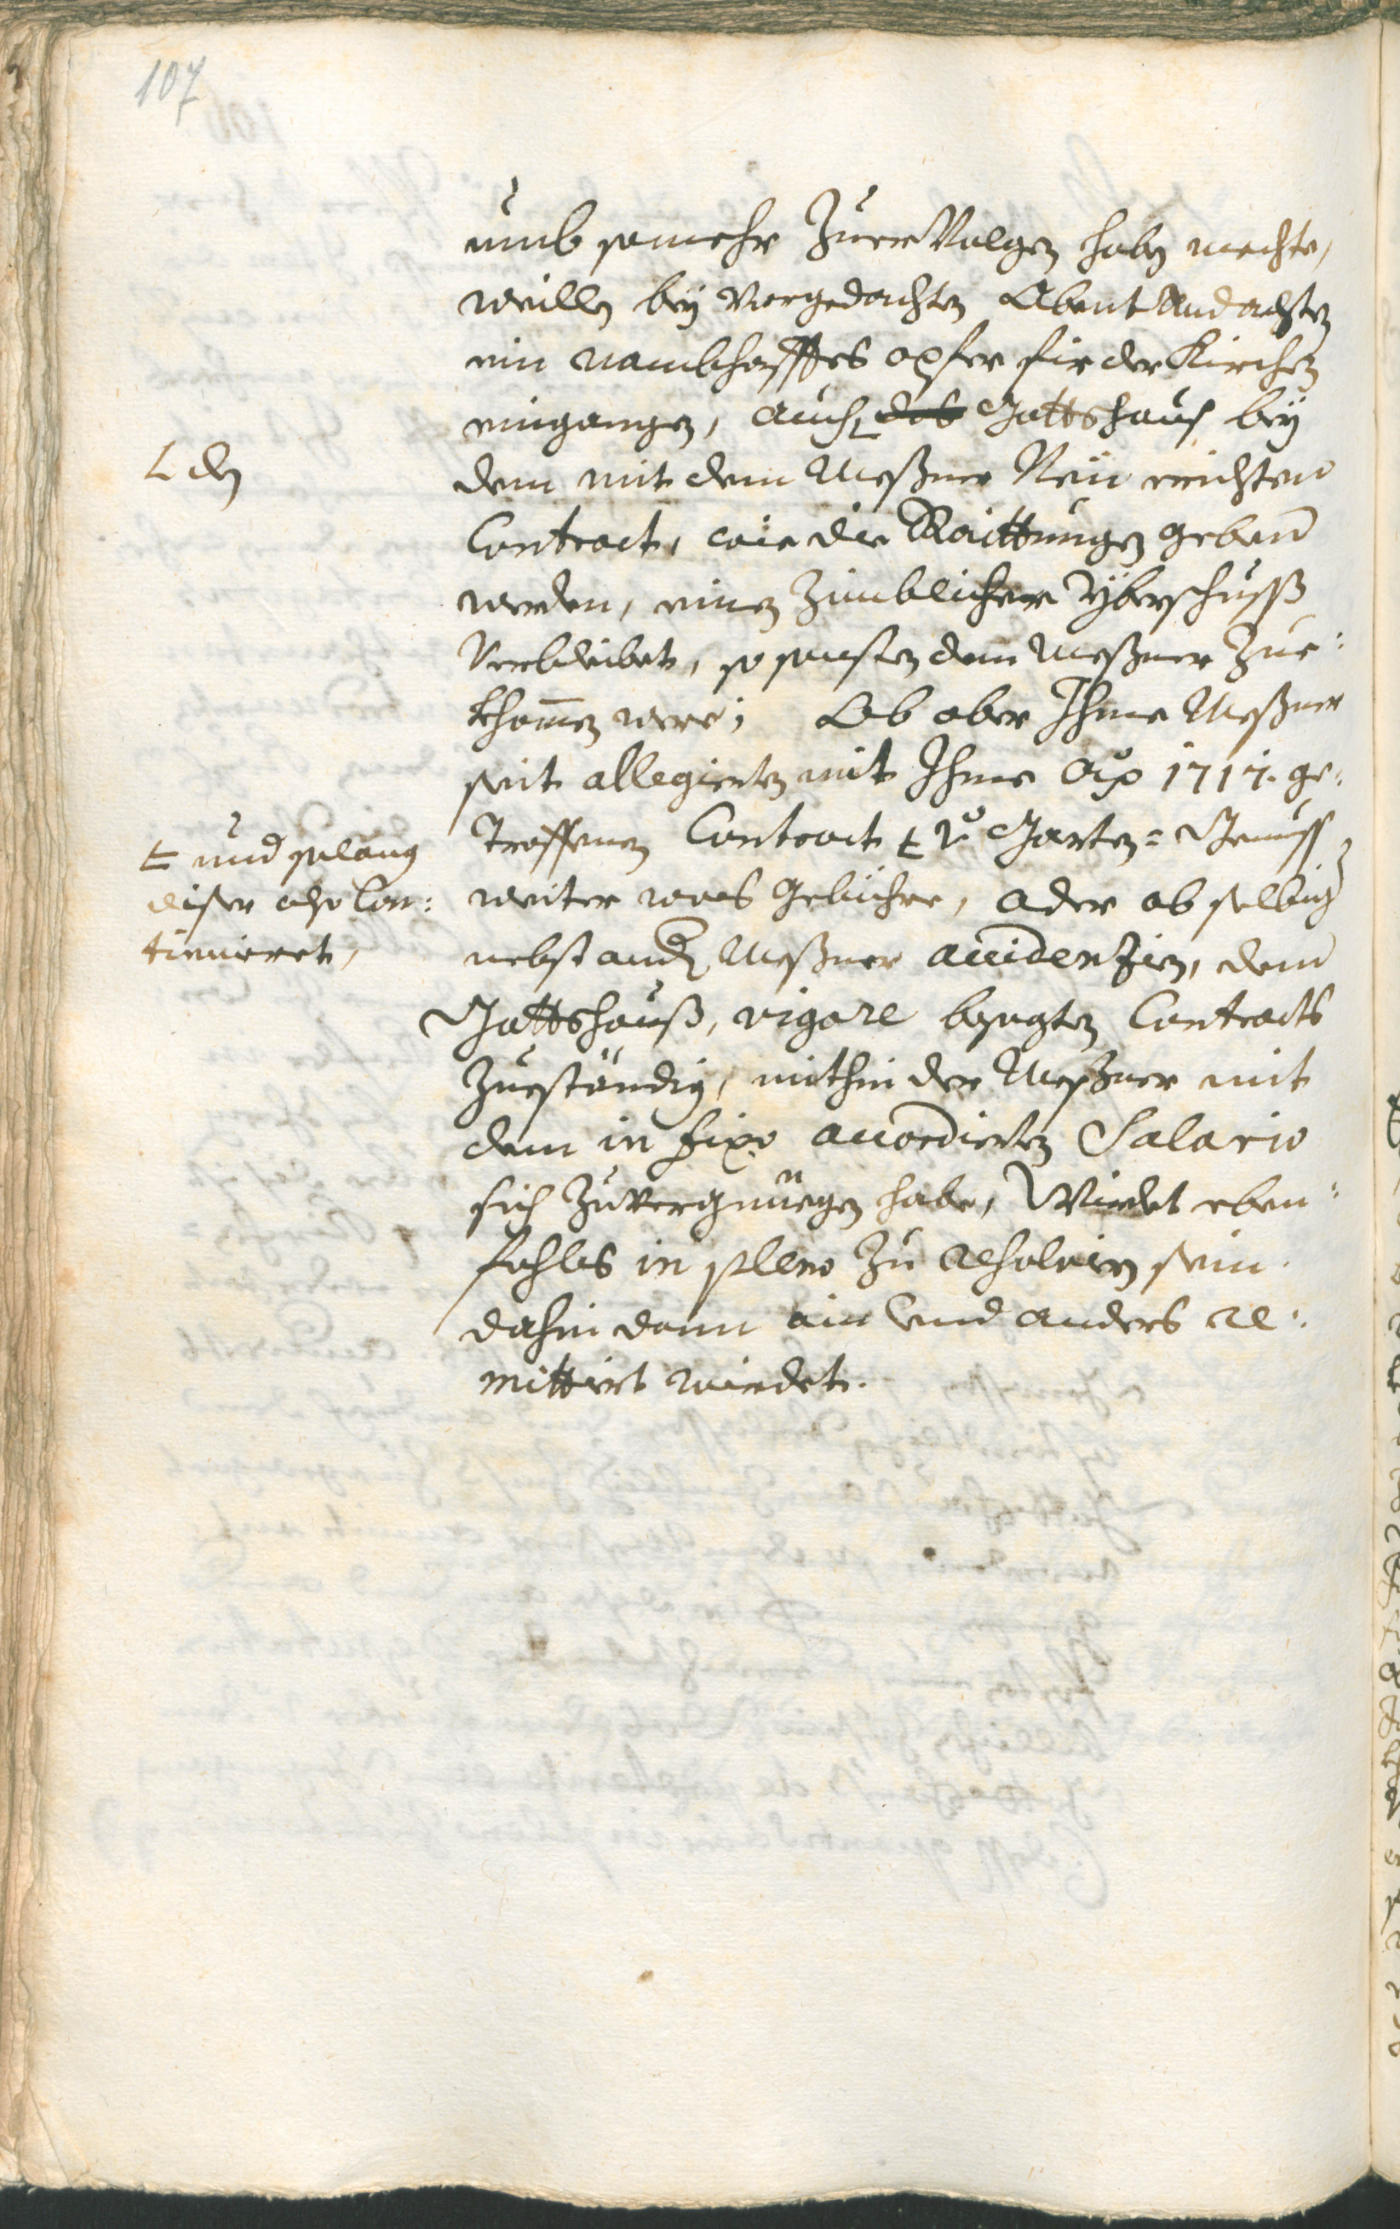 107
umb somehr Zuerr Volgen haben mechte,
weillen bey Vorgedachten Abent Andachten
ein namhafftes opfer fir der Kirchen
eingangen, auch das Gottshaus bey
L den
dem mit dem Meßner Neü errichten
Contract, wie die Raittungen geben
werden, einen Zimblichen Yberschuss
Verbleibet, so sonsten dem Meßner Zue:
khommen were; Ob aber Ihme Meßner
seit allegierten mit Ihme Aō 1717. ge:
troffenen Contract Garten = Genuss
und solang
diser also Con:
tinuieret,
weiter was gebühre, oder ob selbig
nebst andern Meßner accidenzien, dem
Gottshauß, vigore besagten Contracts
Zueständig, mithin der Meßner mit
dem in fixo accordierten Salario
sich Zuvergnüegen habe, Wirdet eben:
fahls in pleno Zu resolviern sein.
dahin dann ain und anders re:
mittirt wirdet.